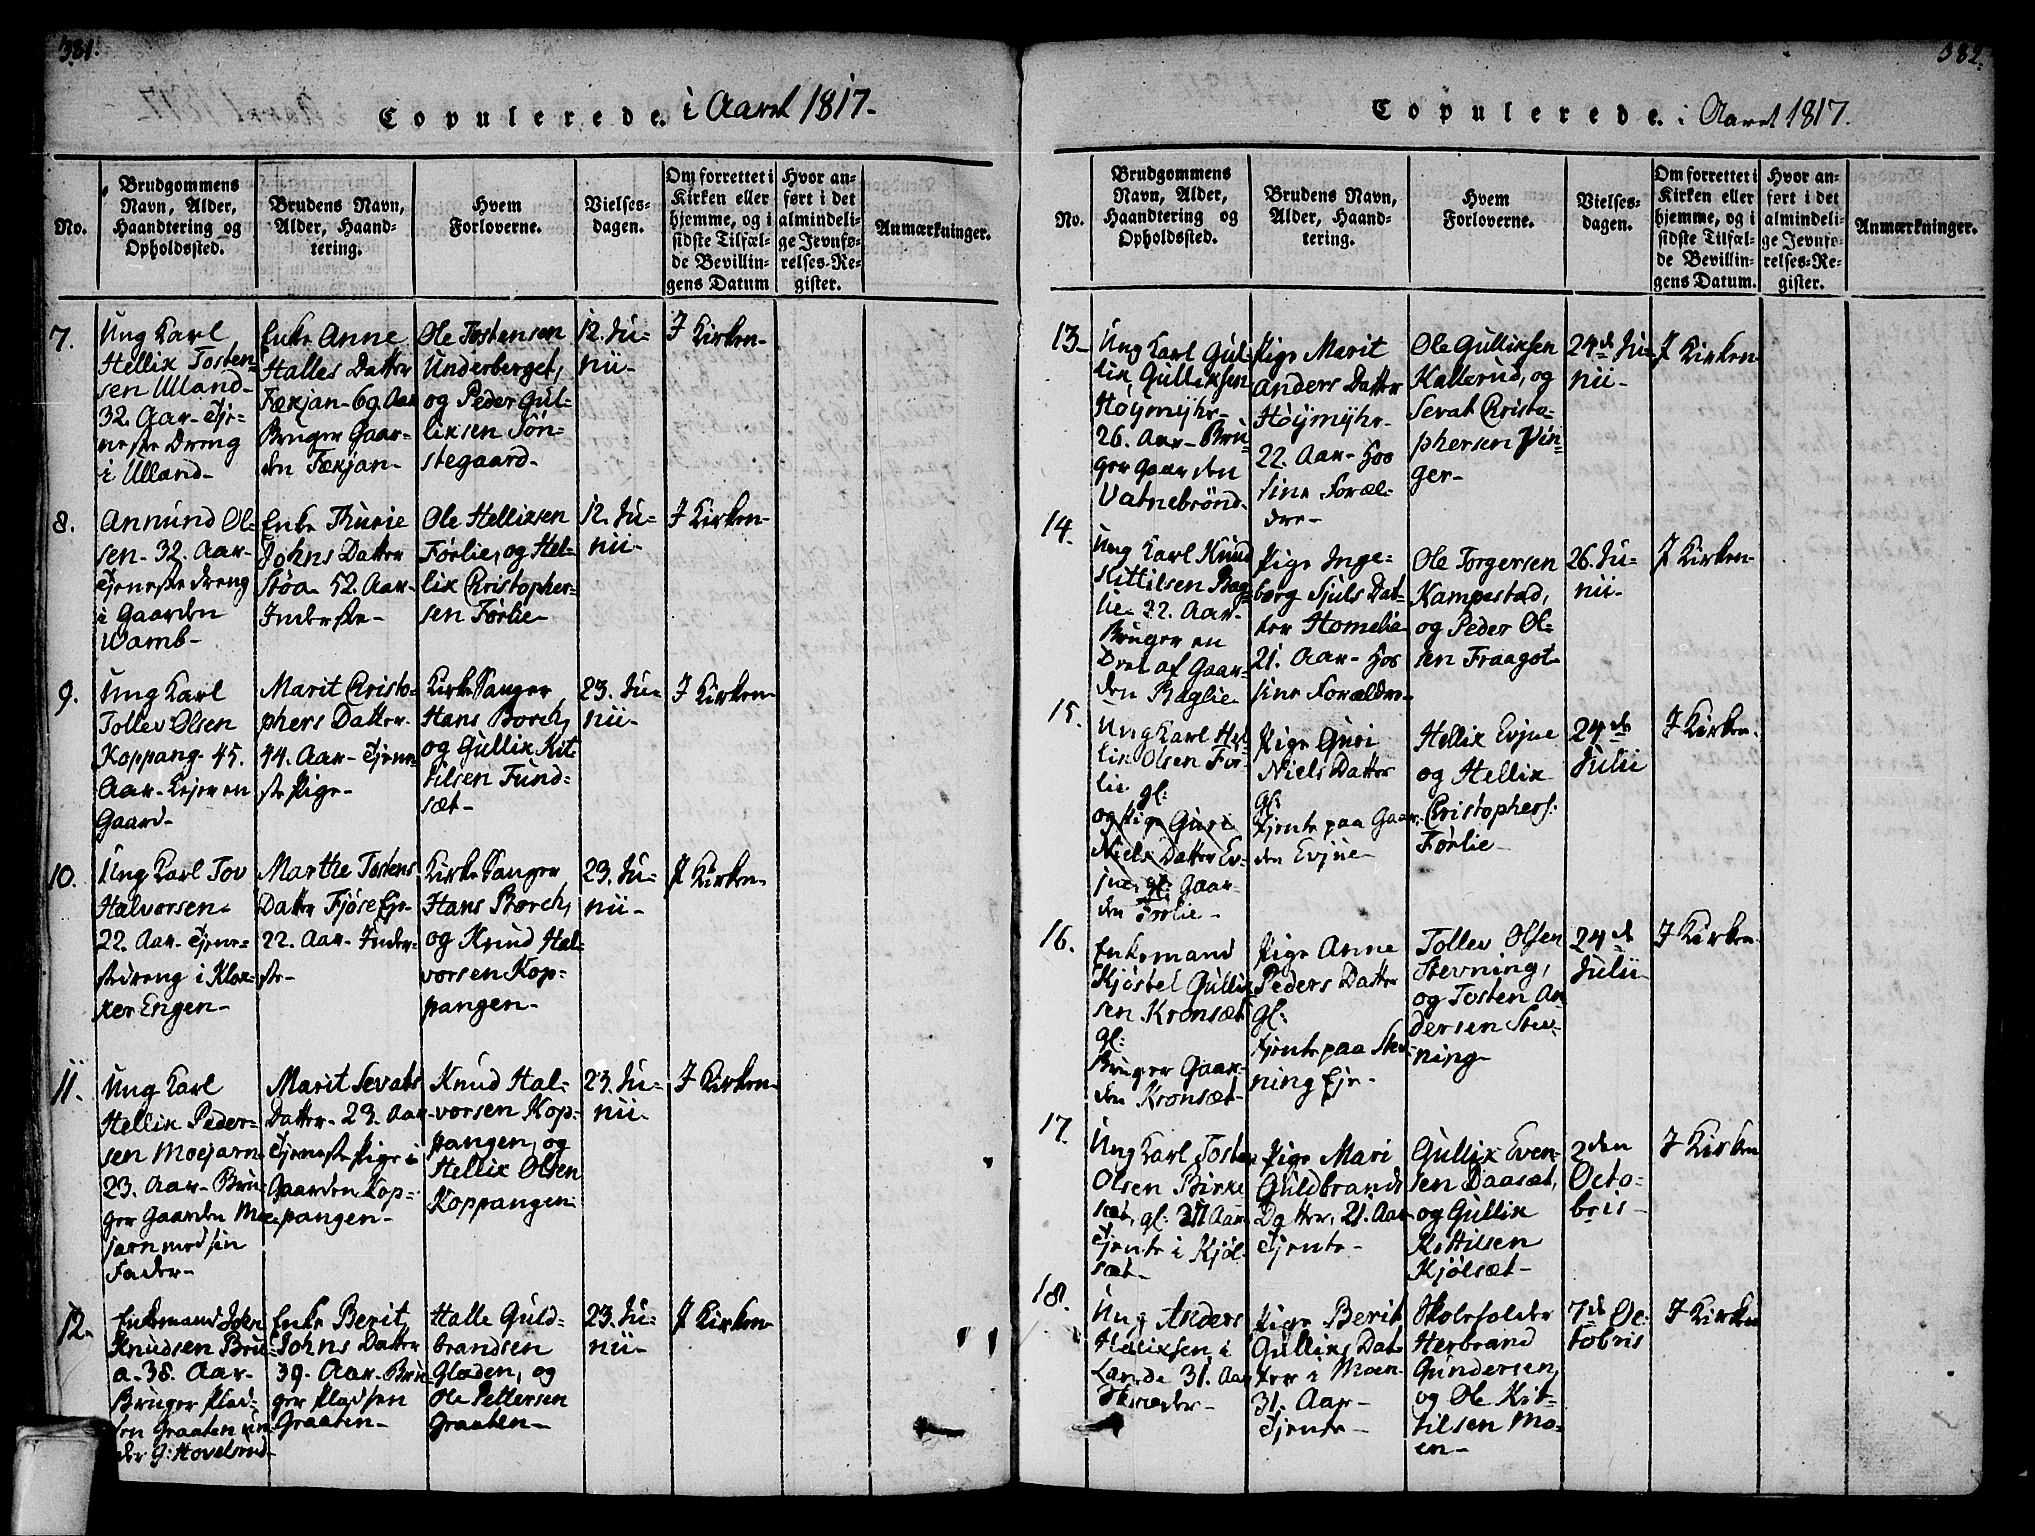 381.
Copulerede. i Aaret 1817.
No.
Brudgommens
Navn, Alder,
Haandtering og
Opholdssted.
Brudens Navn,
Alder, Haand-
tering.
Hvem
Forloverne.
Vielses-
dagen.
Om forrettet i
Kirken eller
hjemme, og i
sidste Tilfæl-
de Bevillin-
gens Datum
Hvor an-
ført i det
almindeli-
ge Jevnfø-
relses-Re-
gister.
Anmærkninger.
7.
Ung Karl
Hellix Tosten-
sen Ulland-
32. Aar- Tje-
neste Dreng
i Ulland-
Enke Anne
Halles Datter
Fæxjan- 69 Aar
Bruger Gaar-
den Fæxjan-
Ole Tostensen
Underberget,
og Peder Gul-
lixsen Søn-
stegaard-
12. Ju-
nii-
I Kirken-
8.
Annund Ol-
sen- 32. Aar-
Tjeneste Dreng
i Gaarden
Wamb-
Enke Thurie
Johns Datter
Støa- 52. Aar-
Inderste-
Ole Hellixsen
Førlie, og Hel-
lix Christopher-
sen Førlie-
12. Ju-
nii-
I Kirken-
9.
Ung Karl
Tollev Olsen
Koppang- 45.
Aar- Lejer en
Gaard-
Marit Christo-
phers Datter-
44. Aar- Tjene-
ste Pige-
Kirke Sanger
Hans Borch,
og Gullix Kit-
tilsen Fund-
sæt-
23. Ju-
nii-
I Kirken-
10.
Ung Karl Tov
Halvorsen-
22. Aar- Tjene-
stedreng i Klox-
ker Engen-
Marthe Tostens
Datter Fjøse Eje-
22. Aar- Inder-
ste-
Kirke Sanger
Hans Borch,
og Knud Hal-
vorsen Kop-
pangen-
23. Ju-
nii-
I Kirken-
11.
Ung Karl
Hellix Peder-
sen Moejarn
23. Aar- Bru-
ger Gaarden Moe-
jarn med sin
Fader-
Marit Sevats
Datter- 23. Aar-
Tjeneste Pige i
Gaarden Kop-
pangen-
Knud Hal-
vorsen Kop-
pangen, og
Hellix Olsen
Koppangen-
23. Ju-
nii-
I Kirken-
12.
Enkemand John
Knudsen Bru-
a- 38. Aar-
Bruger Plad-
sen Graaten un-
der G: Hovelsrud-
Enke Berit
Johns Datter
39. Aar- Bru-
ger Pladsen
Graaten-
Halle Guld-
brandsen
Gladen, og
Ole Pettersen
Graaten-
23. Ju-
nii-
I Kirken-
382.
Copulerede. i Aaret 1817.
No.
Brudgommens
Navn, Alder,
Haandtering og
Opholdssted.
Brudens Navn,
Alder, Haand-
tering.
Hvem
Forloverne.
Vielses-
dagen.
Om forrettet i
Kirken eller
hjemme, og i
sidste Tilfæl-
de Bevillin-
gens Datum.
Hvor an-
ført i det
almindeli-
ge Jevnfø-
relses-Re-
gister.
Anmærkninger.
13.
Ung Karl Gul-
lix Gullixsen
Høymyhr-
26. Aar- Bru-
ger Gaarden
Vatnebrønd-
Pige Marit
Anders Datter
Høymyhr-
22. Aar- Hos
sine Foræl-
dre-
Ole Gullixsen
Kallerud, og
Sevat Christo-
phersen Vin-
ger-
24de Ju-
nii-
I Kirken-
14.
Ung Karl Knud
Kittilsen Bag-
lie- 32. Aar-
Bruger en
Deel af Gaar-
den Baglie-
Pige Inge-
borg Sjuls Dat-
ter Homelie-
21. Aar- Hos
sine Forældre-
Ole Torgersen
Kampestad,
og Peder Ol-
sen Fraagot-
26. Ju-
nii-
I Kirken-
15.
Ung Karl Hel-
lix Olsen Før-
lie gl:
og Pige Guri
Niels Datter Ev-
jue, gl: Gaar-
den Førlie-
Pige Guri
Niels Datter
gl:
tjente paa Gaar-
den Evjue-
Hellix Evjue
og Hellix
Christophers:
Førlie-
24de
Julii
I Kirken-
16.
Enkemand
Kjøstel Gullix-
sen Kronsæt
gl:
Bruger Gaar-
den Kronsæt-
Pige Anne
Peders Datter
gl:
tjente paa Stev-
ning Eje-
Tollev Olsen
Stevning,
og Tosten An-
dersen Stev-
ning-
24de
Julii
I Kirken-
17.
Ung Karl Tosten
Olsen Birke-
sæt, gl: Aar
tjente i Kjøl-
sæt-
Pige Mari
Guldbrands
Datter, 21. Aar
tjente-
Gullix Even-
sen Daasæt,
og Gullix
Kittilsen
Kjølsæt-
2den
Octo-
bris-
I Kirken
18.
Ung Anders
Helixsen i
Larde 31. Aar
Skræder-
Pige Berit
Gullixs Dat-
ter i Moen-
31. Aar-
Tjente-
Skoleholder
Herbrand
Gundersen,
og Ole Kit-
tilsen Mo-
en-
7de Oc-
tobris
I Kirken